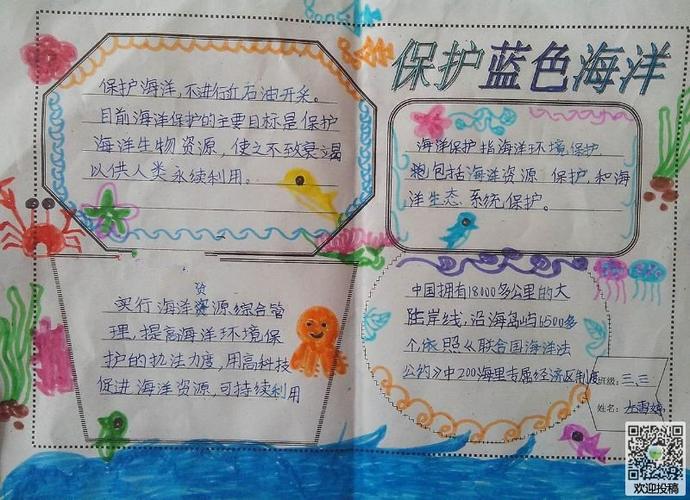 保护蓝色海洋
保护海洋,不进行近石油开采。
目前海洋保护的主要目标是保护
海洋生物资源,使之不致衰竭
以供人类永续利用。
海洋保护指海洋环境保护
包括海洋资源保护和海
洋生态系统保护。
实行海洋资源综合管
理,提高海洋环境保
护的执法力度,用高科技
促进海洋资源,可持续利用
中国拥有18000多公里的大
陆岸线,沿海岛屿6500多
个依照《联合国海洋法
公约》中200海里专属经济区制度
班级:三、三
姓名:
欢迎投稿